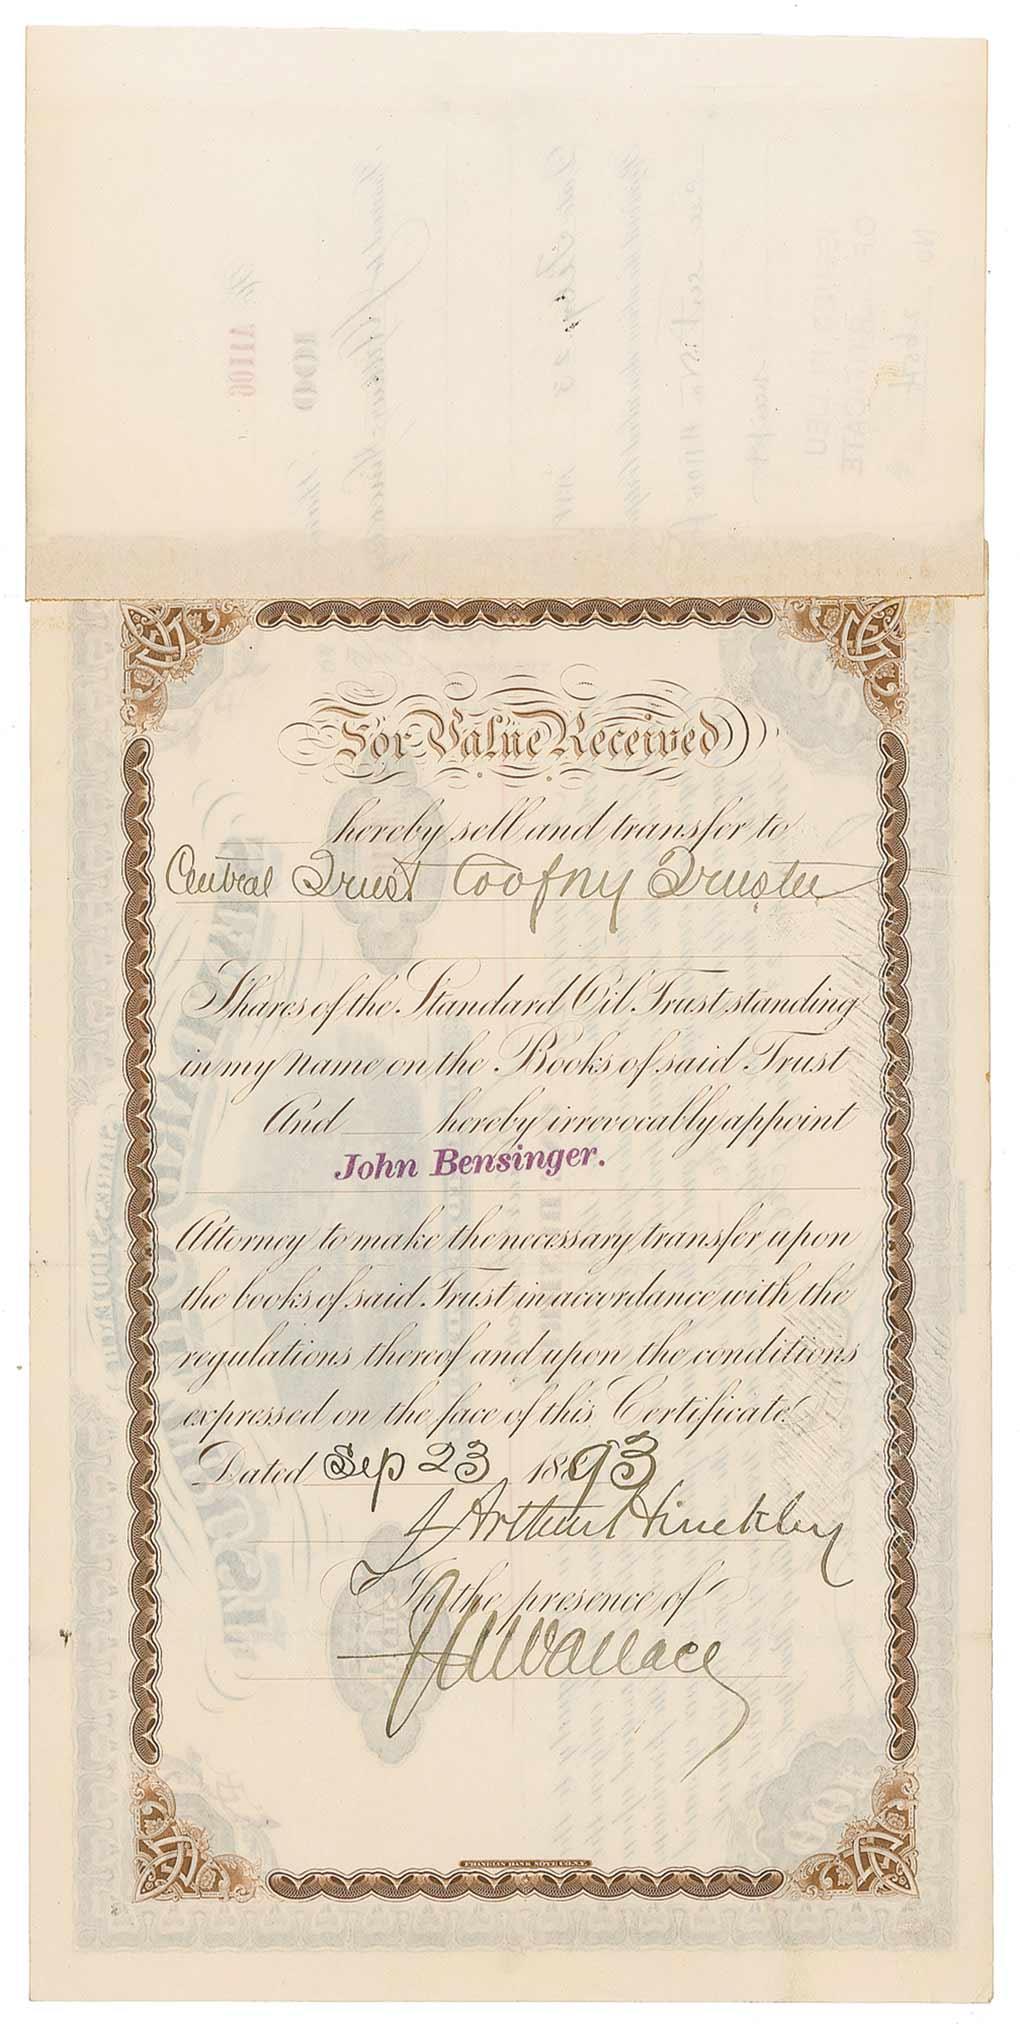 For Value Received
hereby sell and transfer to
Central Trust Co of NY Trustee
Shares of the Standard Oil Trust standing
in my name on the Books of said Trust
And hereby irrevocably appoint
John Bensinger.
Attorney to make the necessary transfer upon
the books of said Trust in accordance with the
regulations thereof and upon the conditions
expressed on the face of this Certificate
Dated Sep 23 1893
J Arthur Hinckley
In the presence of
Wallace
FRANKLIN BANK NOTE CO. N.Y.